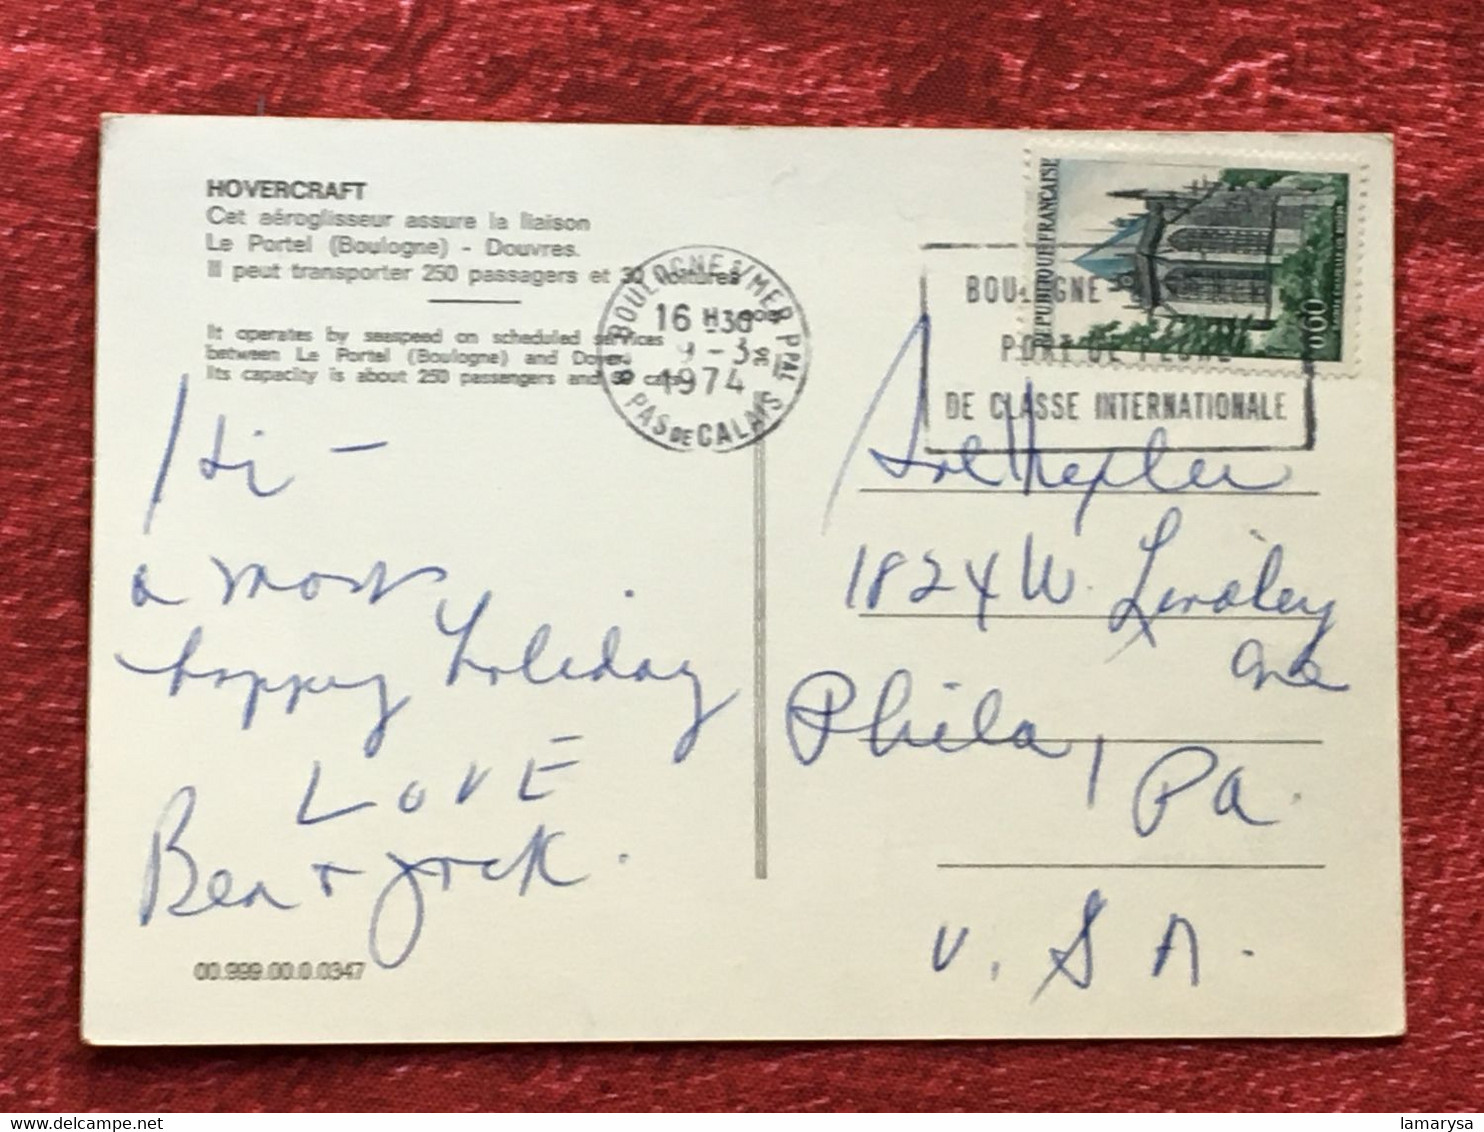 HOVERCRAFT
Cet aéroglisseur assure la liaison
Le Portel (Boulogne) - Douvres.
Il peut transporter 250 passagers et 30 voitures
It operates by seaspeed on scheduled services
between Le Portel (Boulogne) and Dover.
Its capacity is about 250 passengers and 30 cars
BOULOGNE S/MER PPAL
16 H30
9 - 3
1974
PAS DE CALAIS
RÉPUBLIQUE FRANÇAISE
0,60
BOULOGNE
PORT DE PECHE
DE CLASSE INTERNATIONALE
Hi -
a most
happy holiday
LOVE
Ben + Jack.
1824 W.
Ave
Phila, Pa.
U.S.A.
00.999.00.0.0347
lamarysa